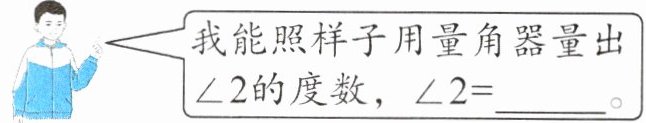 我能照样子用量角器量出
∠2的度数，∠2=______。